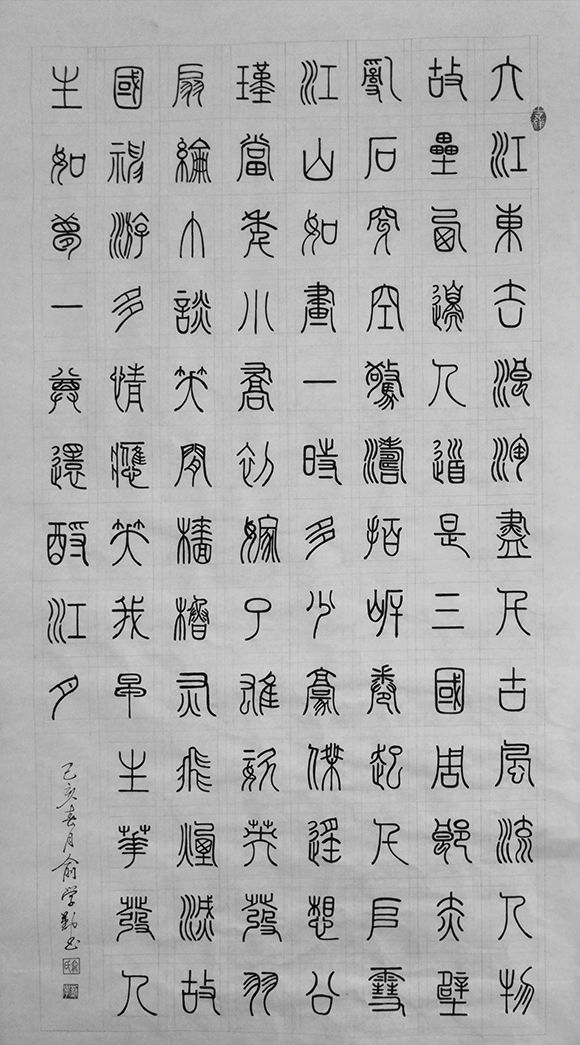 大江東去浪淘盡千古風流人物
故壘西邊人道是三國周郎赤壁
亂石穿空驚濤拍岸卷起千堆雪
江山如畫一時多少豪傑遥想公
瑾當年小喬初嫁了雄姿英發羽
扇綸巾談笑間檣櫓灰飛煙滅故
國神游多情應笑我早生華發人
生如夢一尊還酹江月
己亥春月俞学勤书